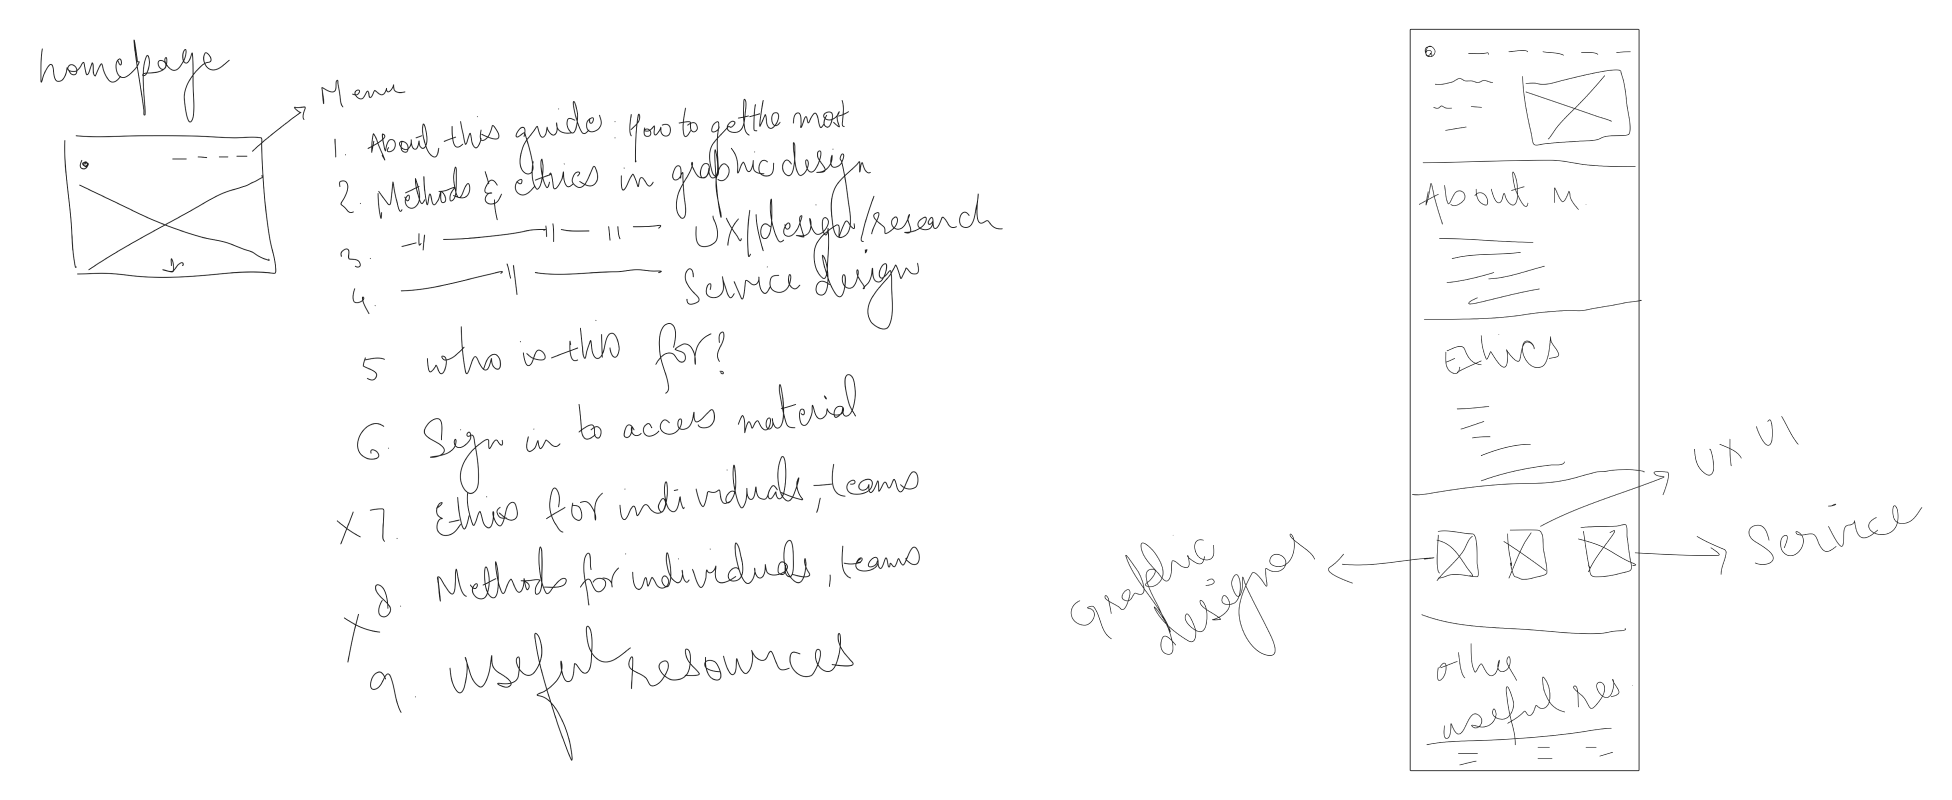 homepage
Menu
1. About this guide: How to get the most
2. Methods & ethics in graphic design
3. —〃— 〃 — 〃 — UX/design/research
4. — 〃 — Service design
5 who is this for?
6. Sign in to access material
x 7. Ethics for individuals, teams
x 8. Methods for individuals, teams
9. useful resources
About u
Ethics
UX UI
Service
graphic
designer
other
useful res